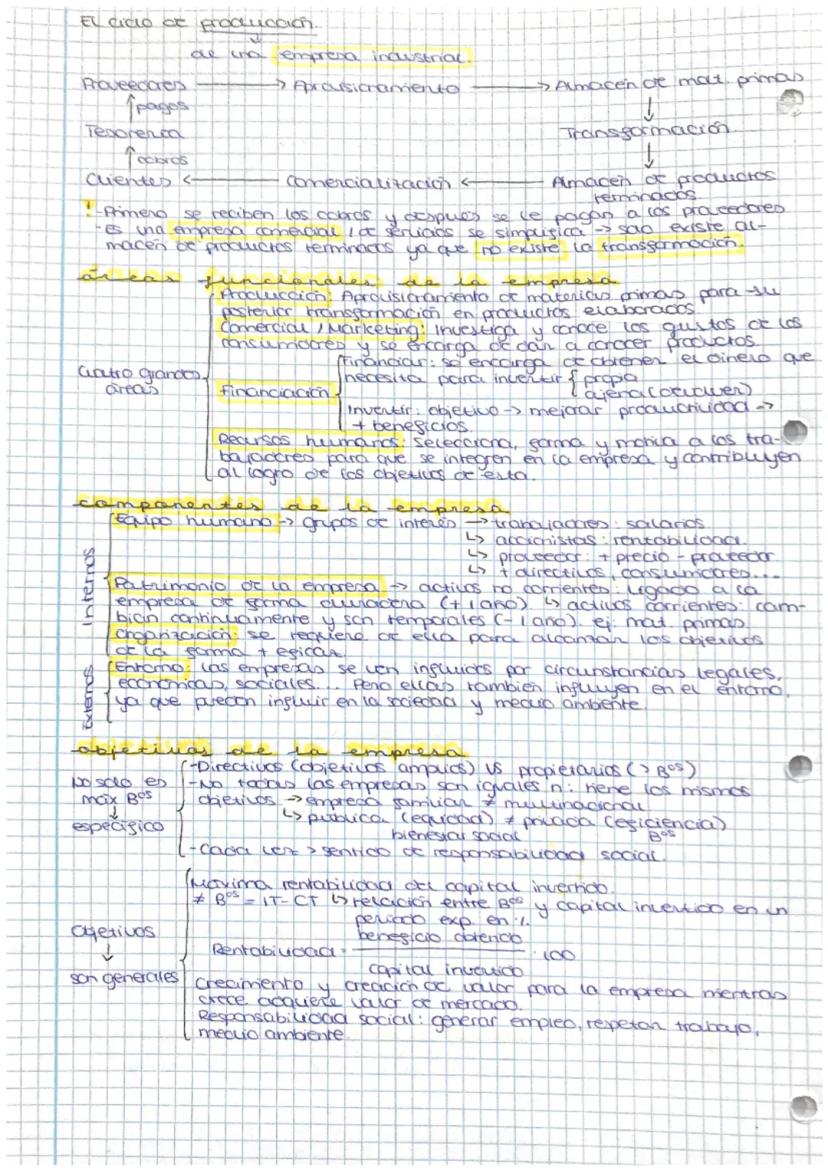 El ciclo de producción
de una empresa industrial.
Proveedores → Aprovisionamiento → Almacén de mat. primas
↑pagos ↓
Tesorería Transformación
↑cobros ↓
Clientes ← comercialización ← Almacén de productos
terminados
! -Primero se reciben los cobros y después se le pagan a los proveedores
-Es una empresa comercial / de servicios se simplifica → solo existe al-
macén de productos terminados ya que no existe la transformación.
áreas funcionales de la empresa
Producción: Aprovisionamiento de materias primas para su
posterior transformación en productos elaborados
Comercial / Marketing: Investiga y conoce los gustos de los
consumidores y se encarga de dar a conocer productos
Financiar: se encarga de obtener el dinero que
Cuatro grandes necesita para invertir { propia
áreas Financiación ajena (devolver)
Invertir: objetivo → mejorar productividad →
+ beneficios.
Recursos humanos: selecciona, forma y motiva a los tra-
bajadores para que se integren en la empresa y contribuyen
al logro de los objetivos de esta.
componentes de la empresa
Equipo humano → grupos de interés → trabajadores: salarios
↳ accionistas: rentabilidad
↳ proveedor: + precio - proveedor
↳ + directivos, consumidores...
Internos
Patrimonio de la empresa → activos no corrientes: ligado a la
empresa de forma duradera (+1 año) ↳ activos corrientes: cam-
bian continuamente y son temporales (-1 año). ej mat. primas
Organización: se requiere de ella para alcanzar los objetivos
de la forma + eficaz
Externos
Entorno: las empresas se ven influidos por circunstancias legales,
económicas, sociales... Pero ellas también influyen en el entorno,
ya que pueden influir en la sociedad y medio ambiente.
objetivos de la empresa
-Directivos (objetivos amplios) VS propietarios (> Bos)
No solo es -No todas las empresas son iguales n: tiene los mismos
máx Bos objetivos → empresa familiar ≠ multinacional
↓ ↳ pública (equidad) ≠ privada (eficiencia)
específico bienestar social Bos
-Cada vez > sentido de responsabilidad social.
Máxima rentabilidad del capital invertido.
≠ Bos = IT-CT ↳ relación entre Bos y capital invertido en un
periodo exp. en %
Objetivos beneficio obtenido
↓ Rentabilidad = ——— · 100
capital invertido
son generales Crecimiento y creación de valor para la empresa mientras
crece adquiere valor de mercado.
Responsabilidad social: generar empleo, respetan trabajo,
medio ambiente.